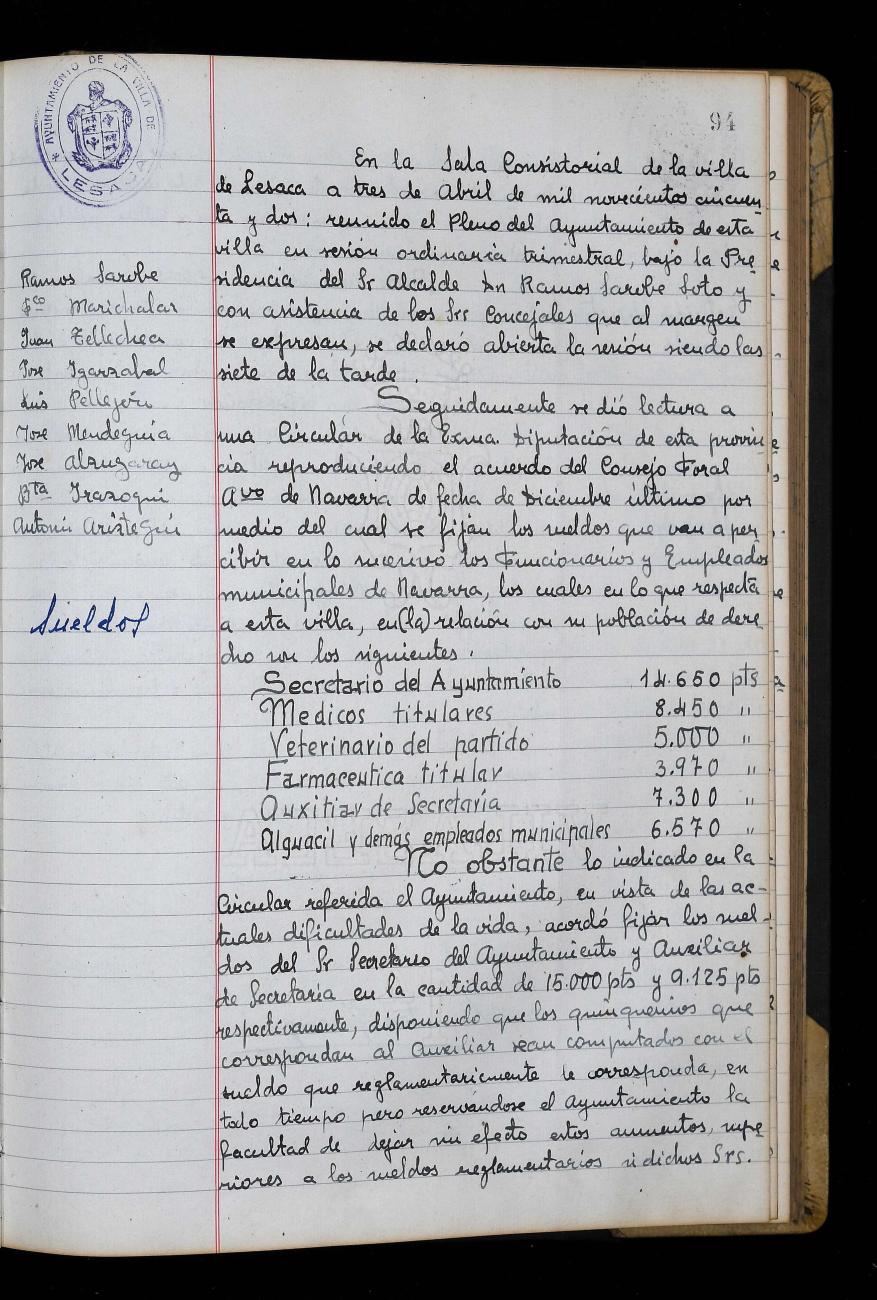 94
* AYUNTAMIENTO DE LA VILLA DE LESACA
Ramos Sarobe
Fco Marichalar
Juan Tellechea
Jose Igarzabal
Luis Pellejero
Jose Mendeguia
Jose Alzugaray
Bta Irazoqui
Antonio Aristegui
Sueldos
En la Sala Consistorial de la villa
de Lesaca a tres de Abril de mil novecientos cincuen
ta y dos: reunido el Pleno del Ayuntamiento de esta
villa en sesión ordinaria trimestral, bajo la Pre
sidencia del Sr Alcalde Dn Ramos Sarobe Soto y
con asistencia de los Srs Concejales que al margen
se expresan, se declaró abierta la sesión siendo las
siete de la tarde.
Seguidamente se dió lectura a
una Circular de la Exma. Diputación de esta provin
cia reproduciendo el acuerdo del Consejo Foral
Avo de Navarra de fecha de Diciembre último por
medio del cual se fijan los sueldos que van a per
cibir en lo sucesivo los Funcionarios y Empleados
municipales de Navarra, los cuales en lo que respecta
a esta villa, en (la) relación con su población de dere
cho son los siguientes.
Secretario del Ayuntamiento 14.650 pts
Medicos titulares 8.450 "
Veterinario del partido 5.000 "
Farmaceutica titular 3.970 "
Auxiliar de Secretaría 7.300 "
Alguacil y demás empleados municipales 6.570 "
No obstante lo indicado en la
Circular referida el Ayuntamiento, en vista de las ac-
tuales dificultades de la vida, acordó fijar los suel-
dos del Sr Secretario del Ayuntamiento y Auxiliar
de Secretaria en la cantidad de 15.000 pts y 9.125 pts
respectivamente, disponiendo que los quinquenios que
correspondan al Auxiliar sean computados con el
sueldo que reglamentariamente le corresponda, en
todo tiempo pero reservandose el Ayuntamiento la
facultad de dejar sin efecto estos aumentos, supe
riores a los sueldos reglamentarios si dichos Srs.